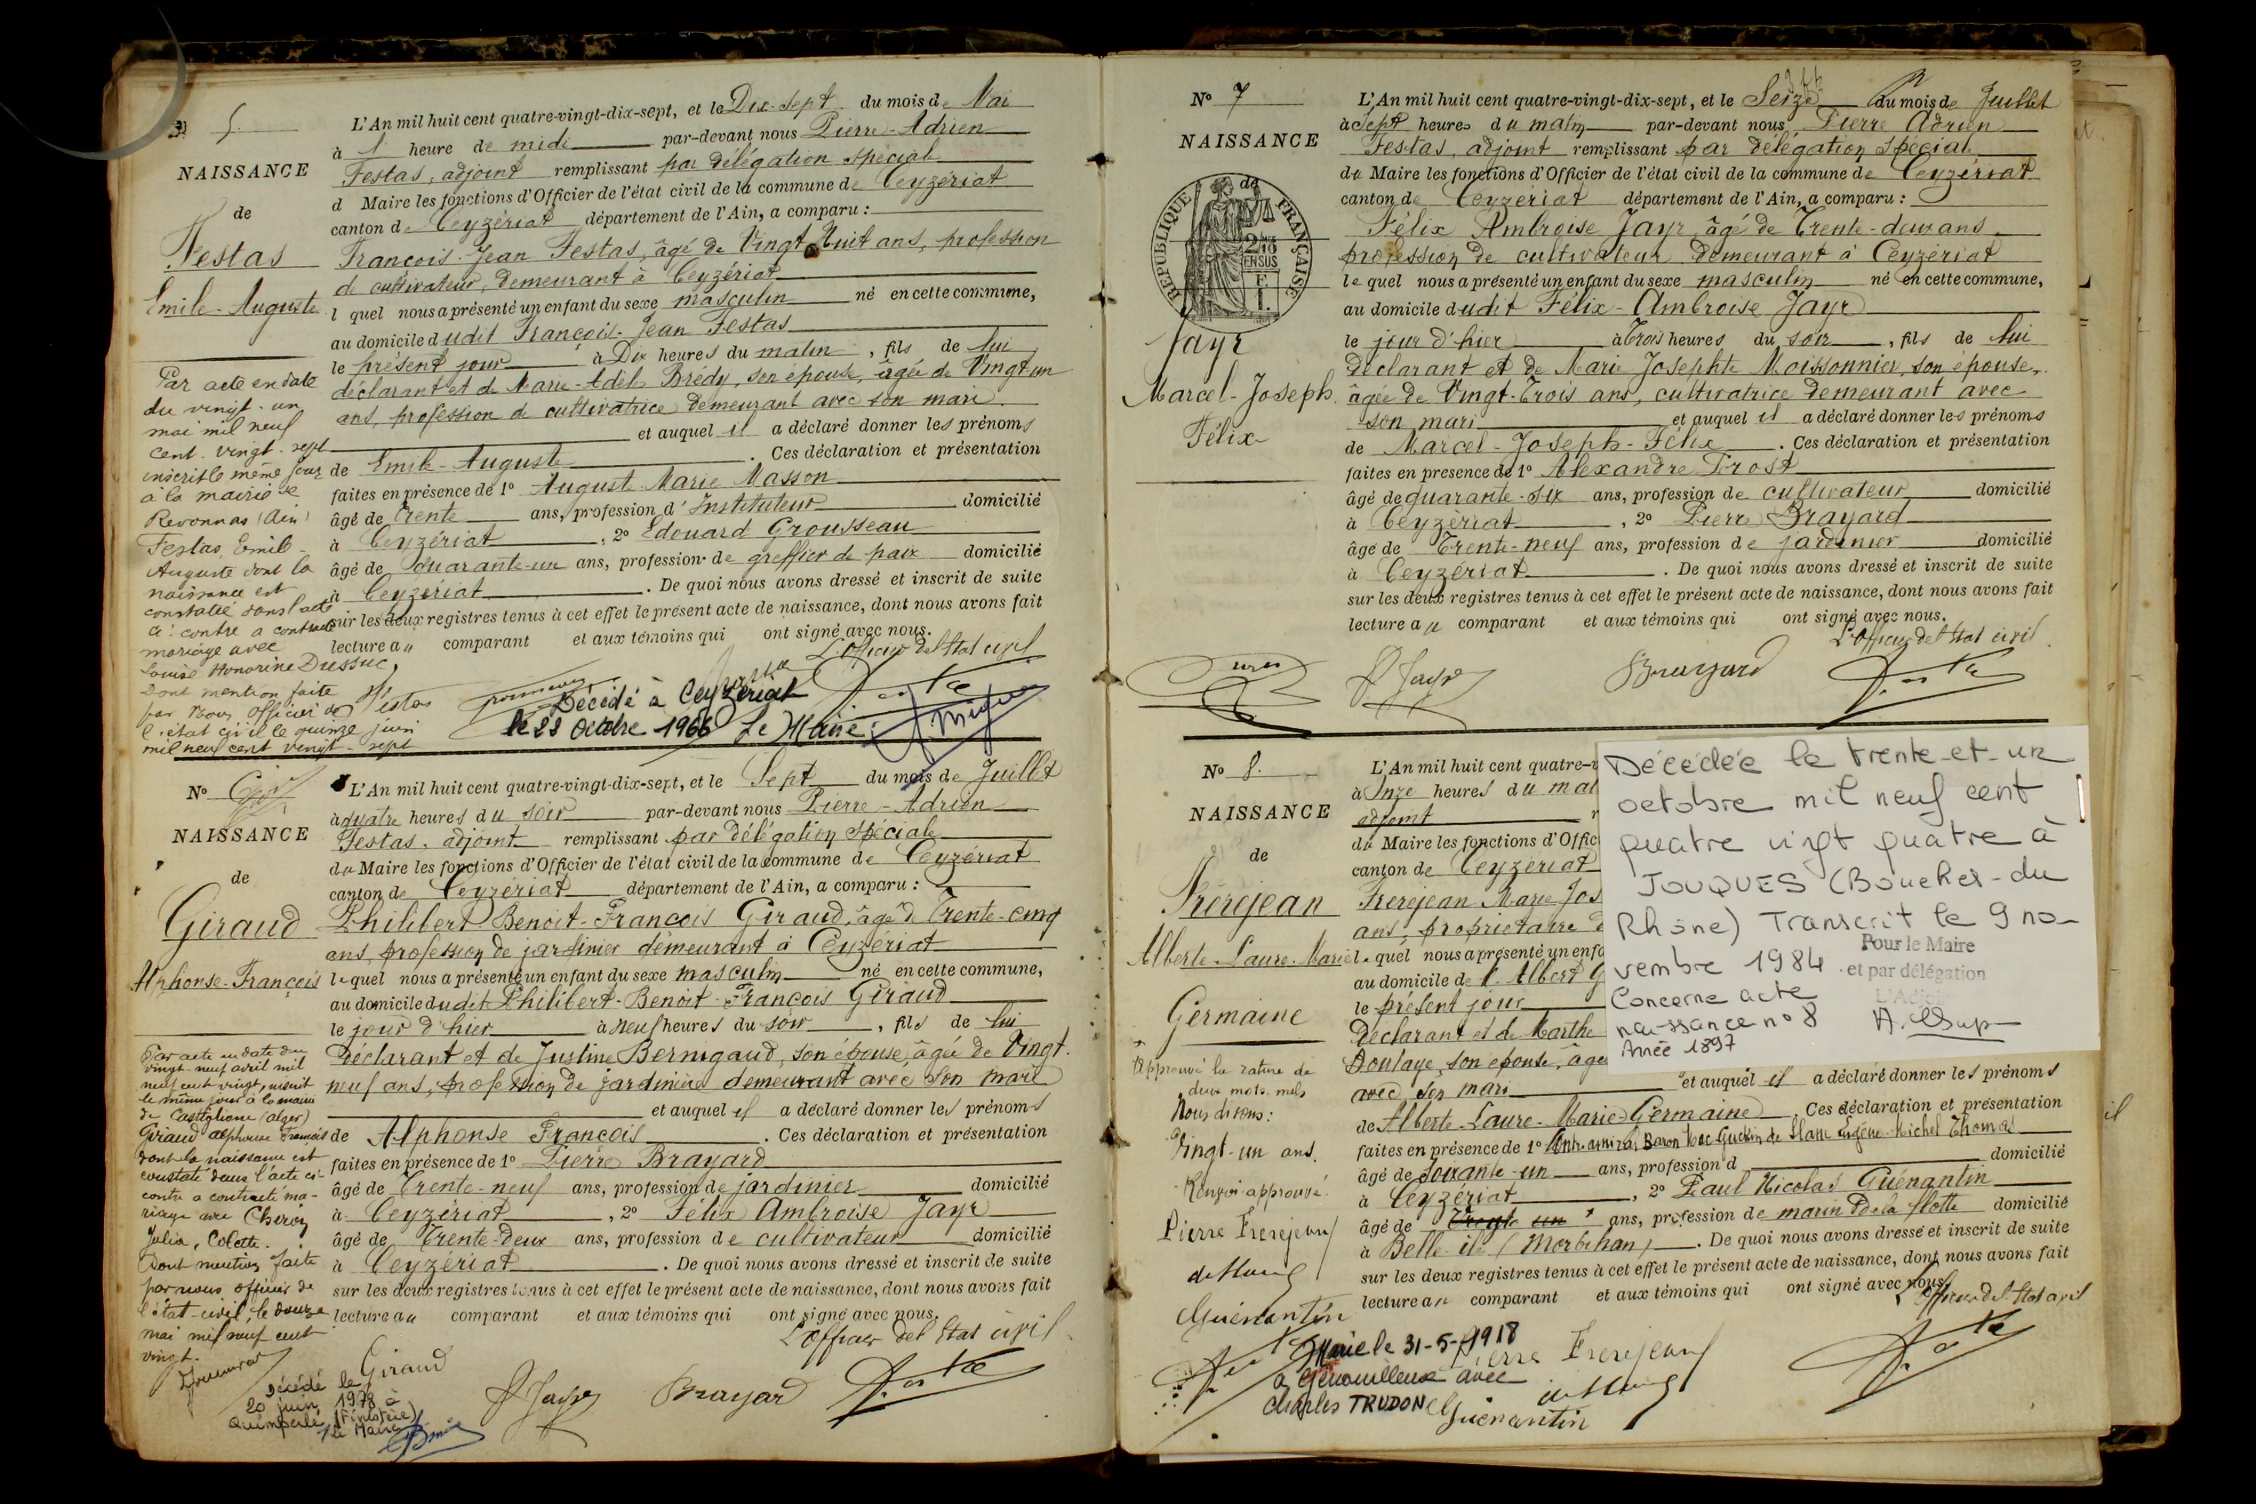 5.
NAISSANCE
de
Festas
Emile-Auguste
Par acte en date
du vingt-un
mai mil neuf
cent vingt-sept
inscrit le même jour
à la mairie de
Revonnas (Ain)
Festas Emile-
Auguste dont la
naissance est
constatée dans l'acte
ci-contre a contracté
mariage avec
Louise Honorine Dussuc,
Dont mention faite
par nous officier de
l'état civil le quinze juin
mil neuf cent vingt-sept
L'An mil huit cent quatre-vingt-dix-sept, et le Dix-Sept du mois de Mai
à 1 heure de midi par-devant nous Pierre-Adrien
Festas, adjoint remplissant par délégation spéciale
d Maire les fonctions d'Officier de l'état civil de la commune de Ceyzériat
canton de Ceyzériat département de l'Ain, a comparu :
François-Jean Festas, âgé de Vingt Huit ans, profession
de cultivateur, demeurant à Ceyzériat
l quel nous a présenté un enfant du sexe masculin né en cette commune,
au domicile dudit François-Jean Festas
le présent jour à Dix heures du matin, fils de lui
déclarant et de Marie-Adèle Brédy, son épouse, âgée de Vingt un
ans, profession de cultivatrice demeurant avec son mari
et auquel il a déclaré donner les prénoms
de Emile-Auguste. Ces déclaration et présentation
faites en présence de 1° Auguste Marie Masson
âgé de Trente ans, profession d'Instituteur domicilié
à Ceyzériat, 2° Edouard Grousseau
âgé de Quarante-un ans, profession de greffier de paix domicilié
à Ceyzériat. De quoi nous avons dressé et inscrit de suite
sur les deux registres tenus à cet effet le présent acte de naissance, dont nous avons fait
lecture au comparant et aux témoins qui ont signé avec nous.
L'Officier de l'Etat civil
Festas
Décédé à Ceyzériat
le 22 Octobre 1966 Le Maire :
N° 6
NAISSANCE
de
Giraud
Alphonse-François
Par acte en date du
vingt-neuf avril mil
neuf cent vingt, inscrit
le même jour à la mairie
de Castiglione (Alger)
Giraud Alphonse François
dont la naissance est
constatée dans l'acte ci-
contre a contracté ma-
riage avec Cheroy
Julia, Colette.
Dont mention faite
par nous, officier de
l'état-civil, le douze
mai mil neuf cent
vingt.
Décédé le
20 juin 1978 à
Quimperlé (Finistère)
Le Maire
L'An mil huit cent quatre-vingt-dix-sept, et le Sept du mois de Juillet
à quatre heures du soir par-devant nous Pierre-Adrien
Festas, adjoint remplissant par délégation spéciale
du Maire les fonctions d'Officier de l'état civil de la commune de Ceyzériat
canton de Ceyzériat département de l'Ain, a comparu :
Philibert Benoit-François Giraud, âgé de Trente-cinq
ans, profession de jardinier demeurant à Ceyzériat
lequel nous a présenté un enfant du sexe masculin né en cette commune,
au domicile dudit Philibert-Benoit-François Giraud
le jour d'hier à neuf heures du soir, fils de lui
déclarant et de Justine Bernigaud, son épouse, âgée de Vingt-
neuf ans, profession de jardinière demeurant avec son mari
et auquel il a déclaré donner les prénoms
de Alphonse François. Ces déclaration et présentation
faites en présence de 1° Pierre Brayard
âgé de Trente-neuf ans, profession de jardinier domicilié
à Ceyzériat, 2° Félix Ambroise Jayr
âgé de Trente-deux ans, profession de cultivateur domicilié
à Ceyzériat. De quoi nous avons dressé et inscrit de suite
sur les deux registres tenus à cet effet le présent acte de naissance, dont nous avons fait
lecture au comparant et aux témoins qui ont signé avec nous.
L'Officier de l'Etat civil
Giraud
F Jayr Brayard
N° 7
NAISSANCE
de
REPUBLIQUE FRANÇAISE
Jayr
Marcel-Joseph
Félix
L'An mil huit cent quatre-vingt-dix-sept, et le Seize du mois de Juillet
à Sept heures du matin par-devant nous Pierre Adrien
Festas, adjoint remplissant par délégation spéciale
du Maire les fonctions d'Officier de l'état civil de la commune de Ceyzériat
canton de Ceyzériat département de l'Ain, a comparu :
Félix Ambroise Jayr, âgé de Trente-deux ans
profession de cultivateur demeurant à Ceyzériat
lequel nous a présenté un enfant du sexe masculin né en cette commune,
au domicile dudit Félix-Ambroise Jayr
le jour d'hier à trois heures du soir, fils de lui
déclarant et de Marie Josephte Moissonnier, son épouse,
âgée de Vingt-Trois ans, cultivatrice demeurant avec
son mari et auquel il a déclaré donner les prénoms
de Marcel-Joseph-Félix. Ces déclaration et présentation
faites en présence de 1° Alexandre Prost
âgé de quarante-six ans, profession de cultivateur domicilié
à Ceyzériat, 2° Pierre Brayard
âgé de Trente-neuf ans, profession de jardinier domicilié
à Ceyzériat. De quoi nous avons dressé et inscrit de suite
sur les deux registres tenus à cet effet le présent acte de naissance, dont nous avons fait
lecture au comparant et aux témoins qui ont signé avec nous.
L'Officier de l'Etat civil
F Jayr Brayard
N° 8.
NAISSANCE
de
Frèrejean
Alberte-Laure-Marie
Germaine
Approuvé la rature de
deux mots nuls
Nous disons :
Vingt-un ans.
Renvoi approuvé.
Pierre Frerejean
Guénantin
Marié le 31-5-1918
à Genouilleux avec
Charles TRUDON
L'An mil huit cent quatre-v
à Onze heures du mat
adjoint
du Maire les fonctions d'Offic
canton de Ceyzériat
Frerejean Marie Jos
ans, propriétaire d
le quel nous a présenté un enfa
au domicile de
le présent jour
Déclarant et de Marthe
son épouse, âgé
avec son mari et auquel il a déclaré donner les prénoms
de Alberte-Laure-Marie-Germaine. Ces déclaration et présentation
faites en présence de 1° Contre amiral, Baron Mac Guckin de Slane Eugène-Michel Thomas
âgé de Soixante-un ans, profession d domicilié
à Ceyzériat, 2° Paul Nicolas Guénantin
âgé de Vingt un ans, profession de marin de la flotte domicilié
à Belle-île (Morbihan). De quoi nous avons dressé et inscrit de suite
sur les deux registres tenus à cet effet le présent acte de naissance, dont nous avons fait
lecture au comparant et aux témoins qui ont signé avec nous.
L'Officier de l'Etat civil
Pierre Frerejean
Guénantin
Décédée le trente-et-un
octobre mil neuf cent
quatre vingt quatre à
JOUQUES (Bouches-du
Rhône) Transcrit le 9 no-
vembre 1984.
Pour le Maire
et par délégation
L'Adjoint
Concerne acte
naissance n° 8
Année 1897
il